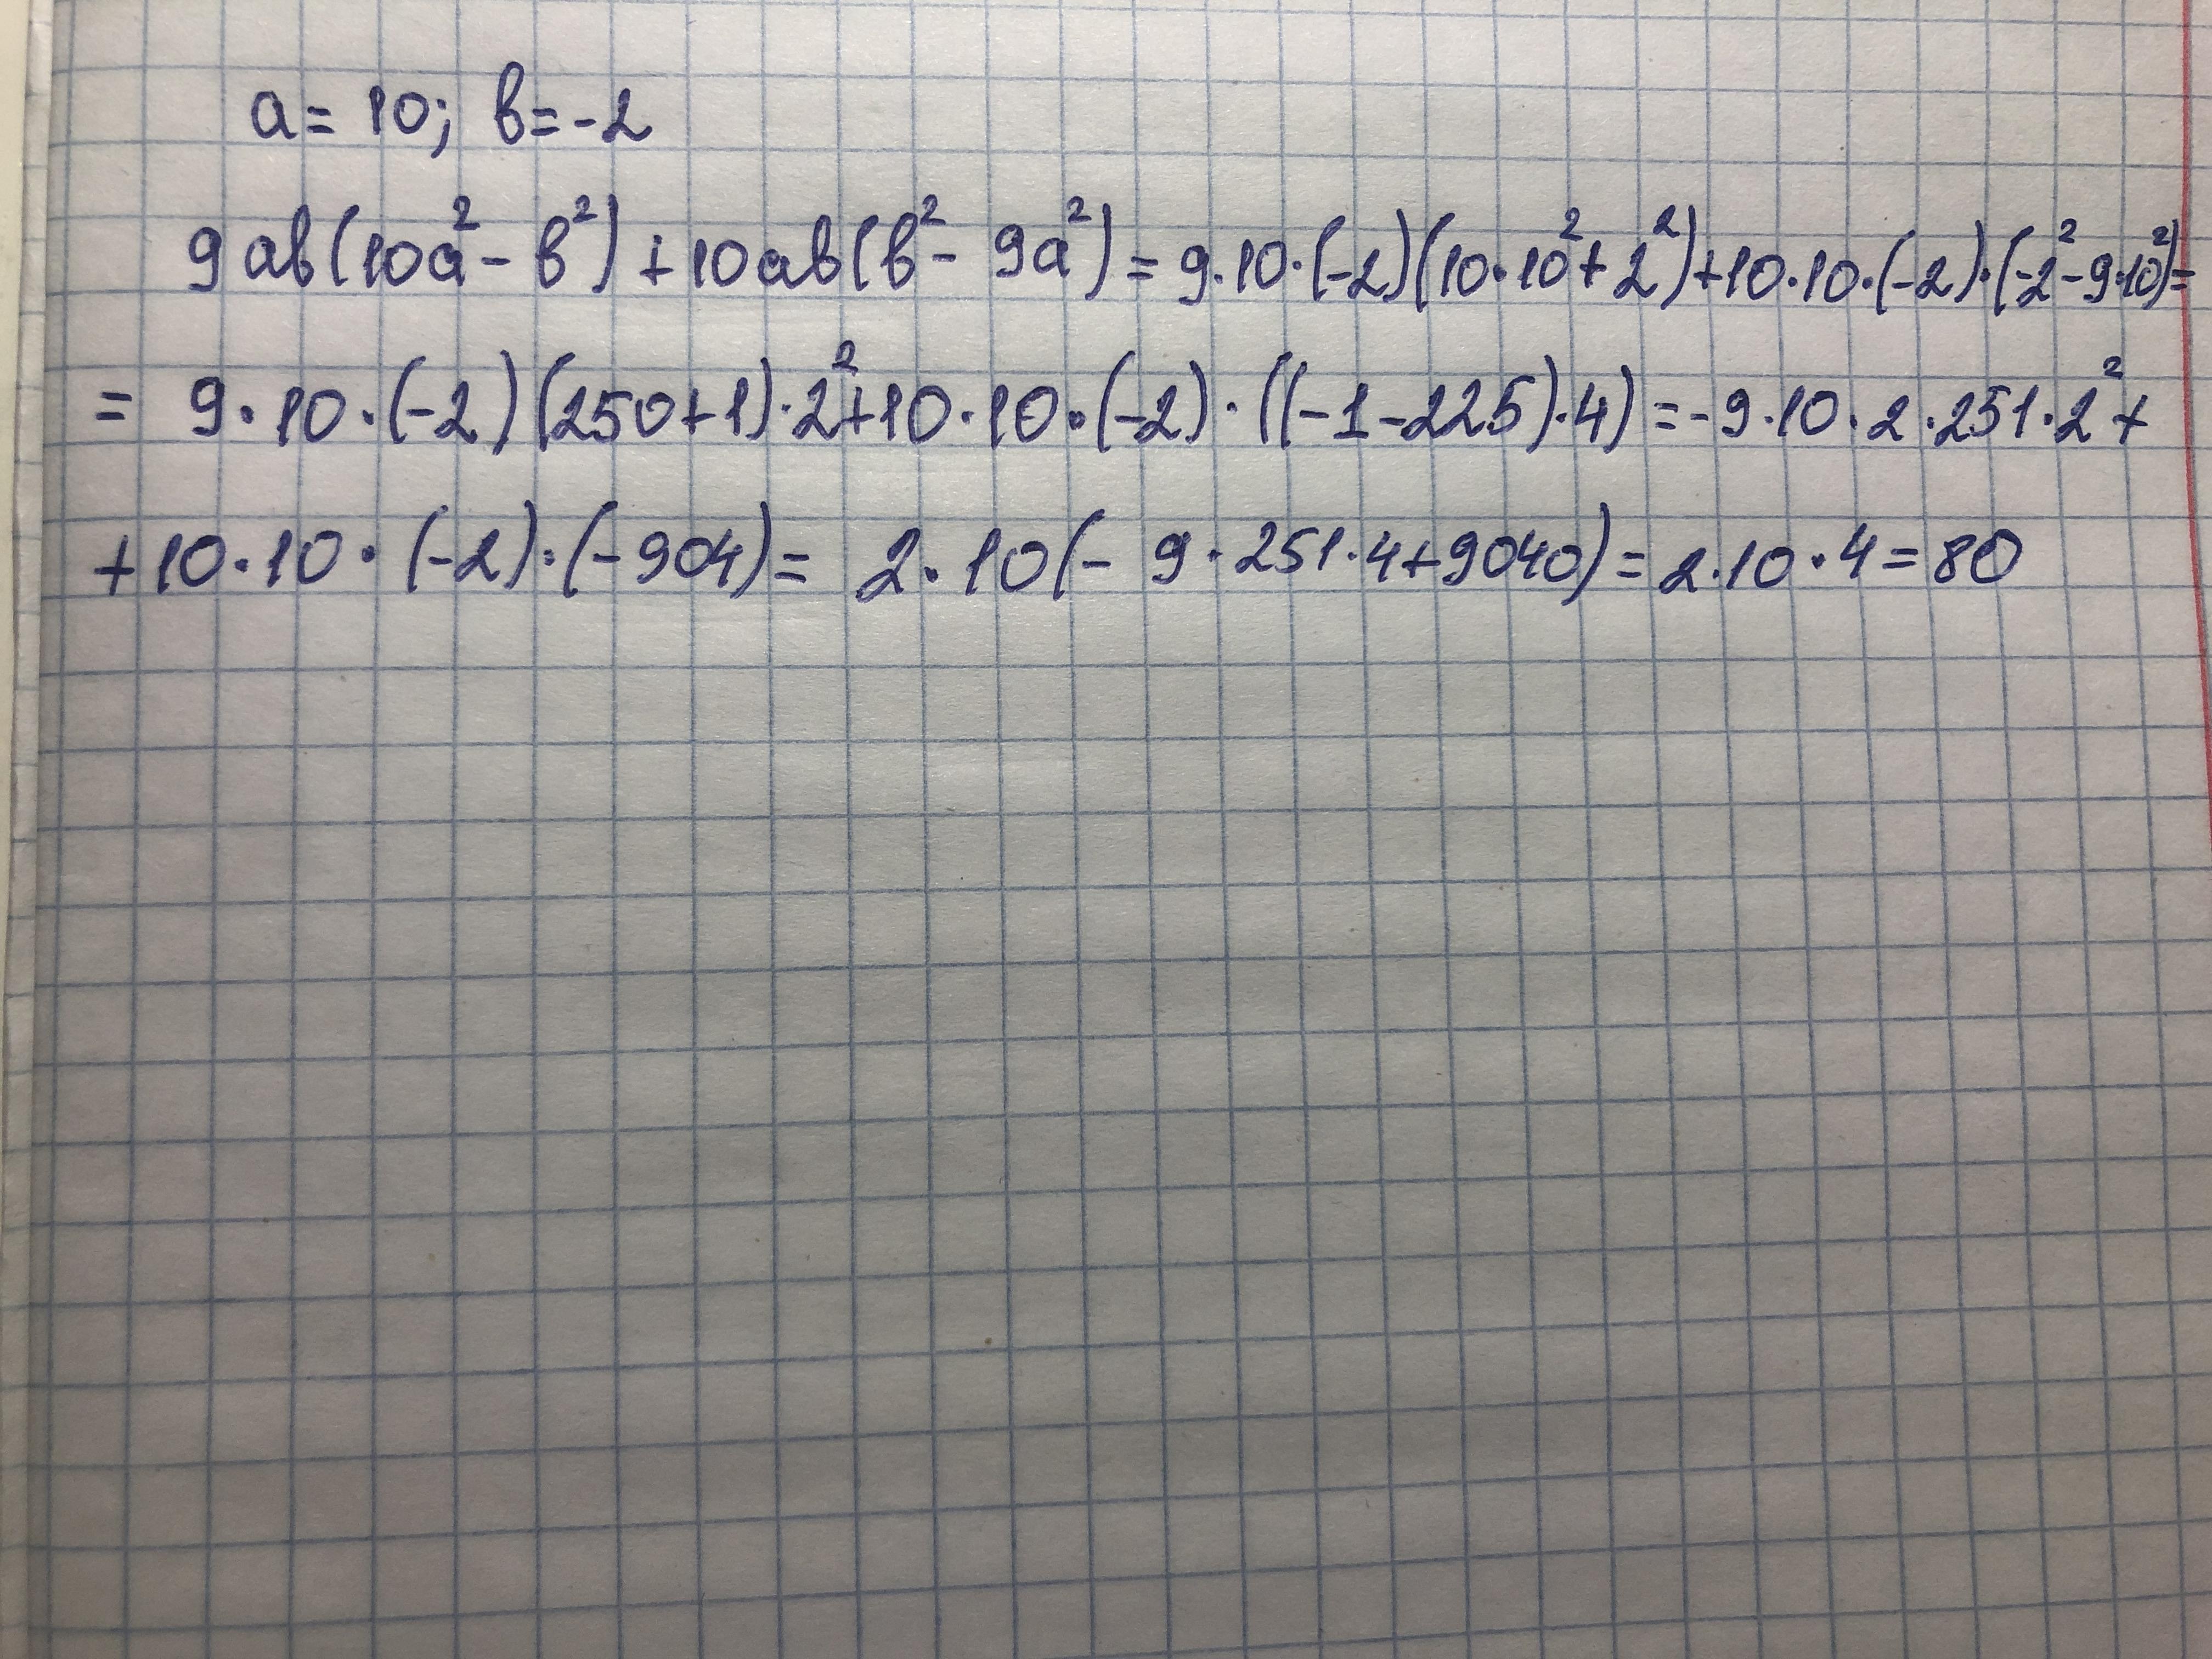 a = 10; b = -2
9ab(10a² - b²) + 10ab(b² - 9a²) = 9·10·(-2)(10·10² + 2²) + 10·10·(-2)·(-2² - 9·10²) =
= 9·10·(-2)(250+1)·2² + 10·10·(-2)·((-1-225)·4) = -9·10·2·251·2² +
+ 10·10·(-2)·(-904) = 2·10(-9·251·4+9040) = 2·10·4 = 80